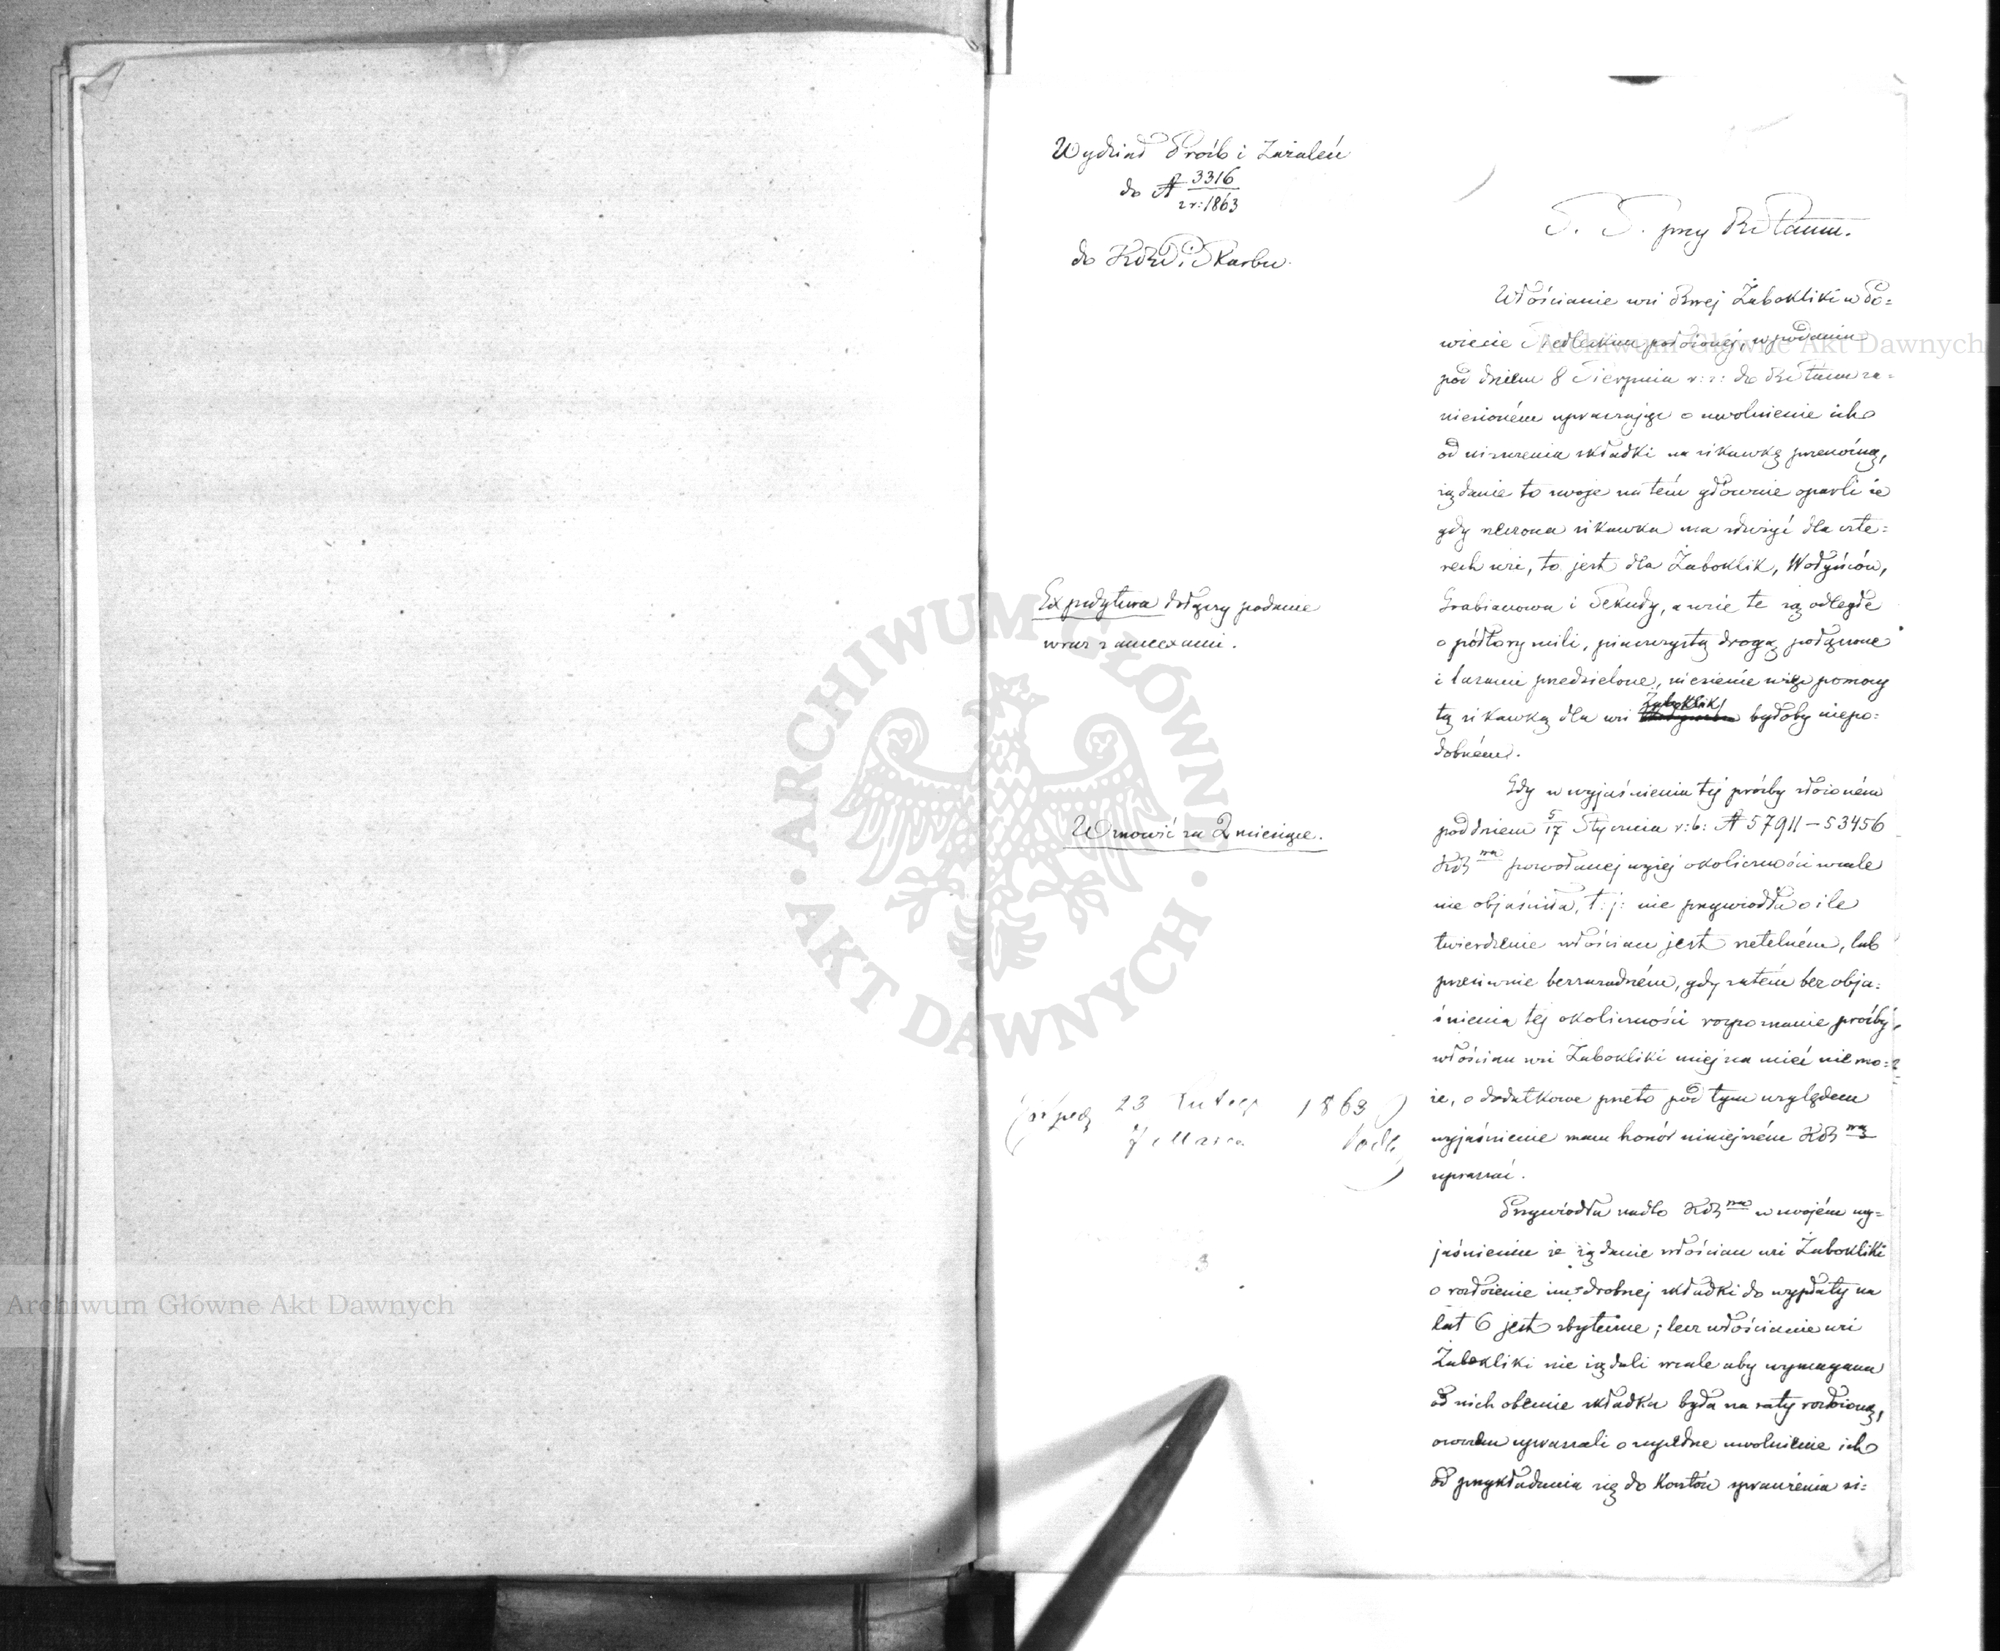 Wydział Próśb i Zażaleń
do № 3316
z r: 1863
do KRP i Skarbu.
Expedytura dołączy podanie
wraz z annexami.
Wznowić za 2 miesiące.
23 Lutego 1863
7 Marca
S. S. przy RStanu.
Włościanie wsi Rząej Żabokliki w Po=
wiecie Siedleckim położonej, w podaniu
pod dniem 8 Sierpnia r: z: do RStanu za=
niesioném upraszając o uwolnienie ich
od niszczenia składki na sikawkę przenośną,
żądanie to swoje na tém głównie oparli że
gdy rzeczona sikawka ma służyć dla czte=
rech wsi, to jest dla Żaboklik, Wołyńców,
Grabianowa i Sekuły, a wsie te są odległe
o półtory mili, piaszczystą drogą połączone
i lasami przedzielone, niesienie więc pomocy
tą sikawką dla wsi Żabokliki byłoby niepo=
dobném.
Gdy w wyjaśnieniu tej prośby złożoném
pod dniem 5/17 Stycznia r: b: № 57911–53456
KR powołanej wyżej okoliczności wcale
nie objaśniła, t: j: nie przywiodła o ile
twierdzenie włościan jest rzetelném, lub
przeciwnie bezzasadném, gdy zatém bez obja=
śnienia tej okoliczności rozpoznanie prośby
włościan wsi Żabokliki miejsca mieć nie mo=
że, o dodatkowe przeto pod tym względem
wyjaśnienie mam honór niniejszém KR
upraszać.
Przywiodła nadto KR w swojém wy=
jaśnieniu że żądanie włościan wsi Żabokliki
o rozłożenie im drobnej składki do wypłaty na
lat 6 jest zbyteczne; lecz włościanie wsi
Żabokliki nie żądali wcale aby wymagana
od nich obecnie składka była na raty rozłożoną,
owszem upraszali o zupełne uwolnienie ich
od przykładania się do kosztów sprawienia si=
Archiwum Główne Akt Dawnych
Archiwum Główne Akt Dawnych
ARCHIWUM GŁÓWNE
AKT DAWNYCH